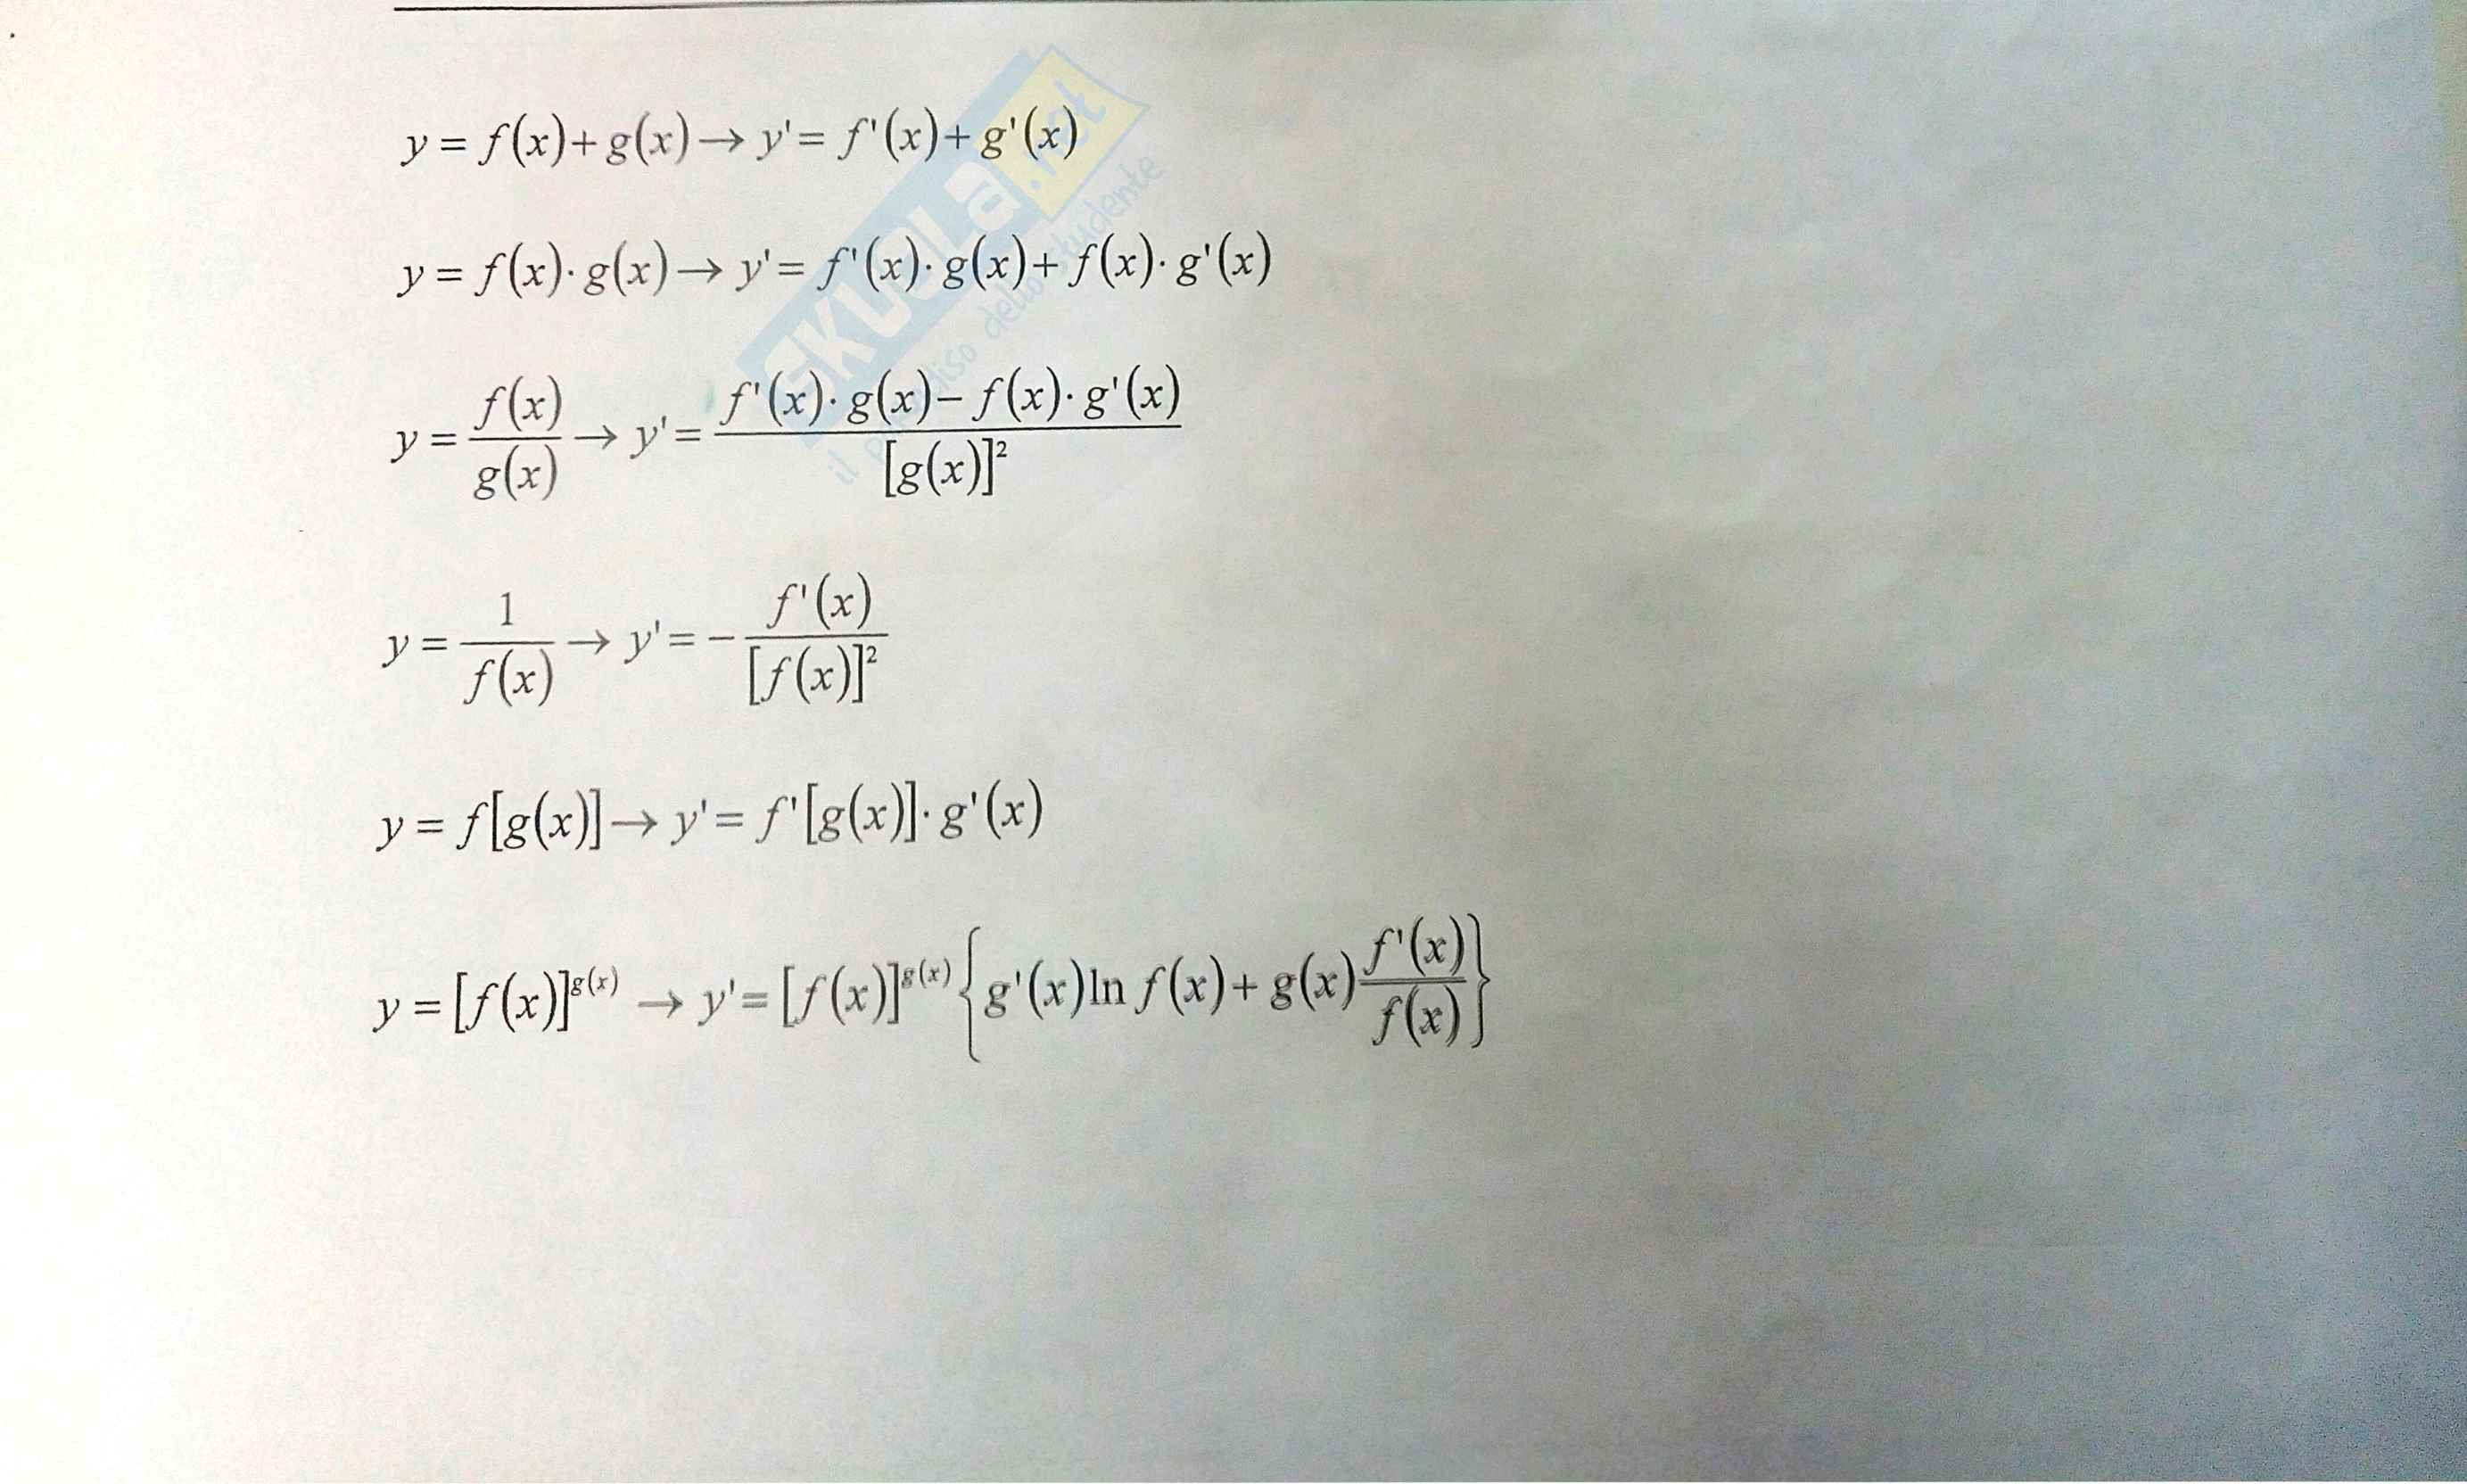 y = f(x) + g(x) → y' = f'(x) + g'(x)
y = f(x) · g(x) → y' = f'(x) · g(x) + f(x) · g'(x)
y = f(x)/g(x) → y' = (f'(x) · g(x) − f(x) · g'(x))/[g(x)]²
y = 1/f(x) → y' = − f'(x)/[f(x)]²
y = f[g(x)] → y' = f'[g(x)] · g'(x)
y = [f(x)]^g(x) → y' = [f(x)]^g(x) {g'(x) ln f(x) + g(x) f'(x)/f(x)}
SKUOLA.net
il paradiso dello studente